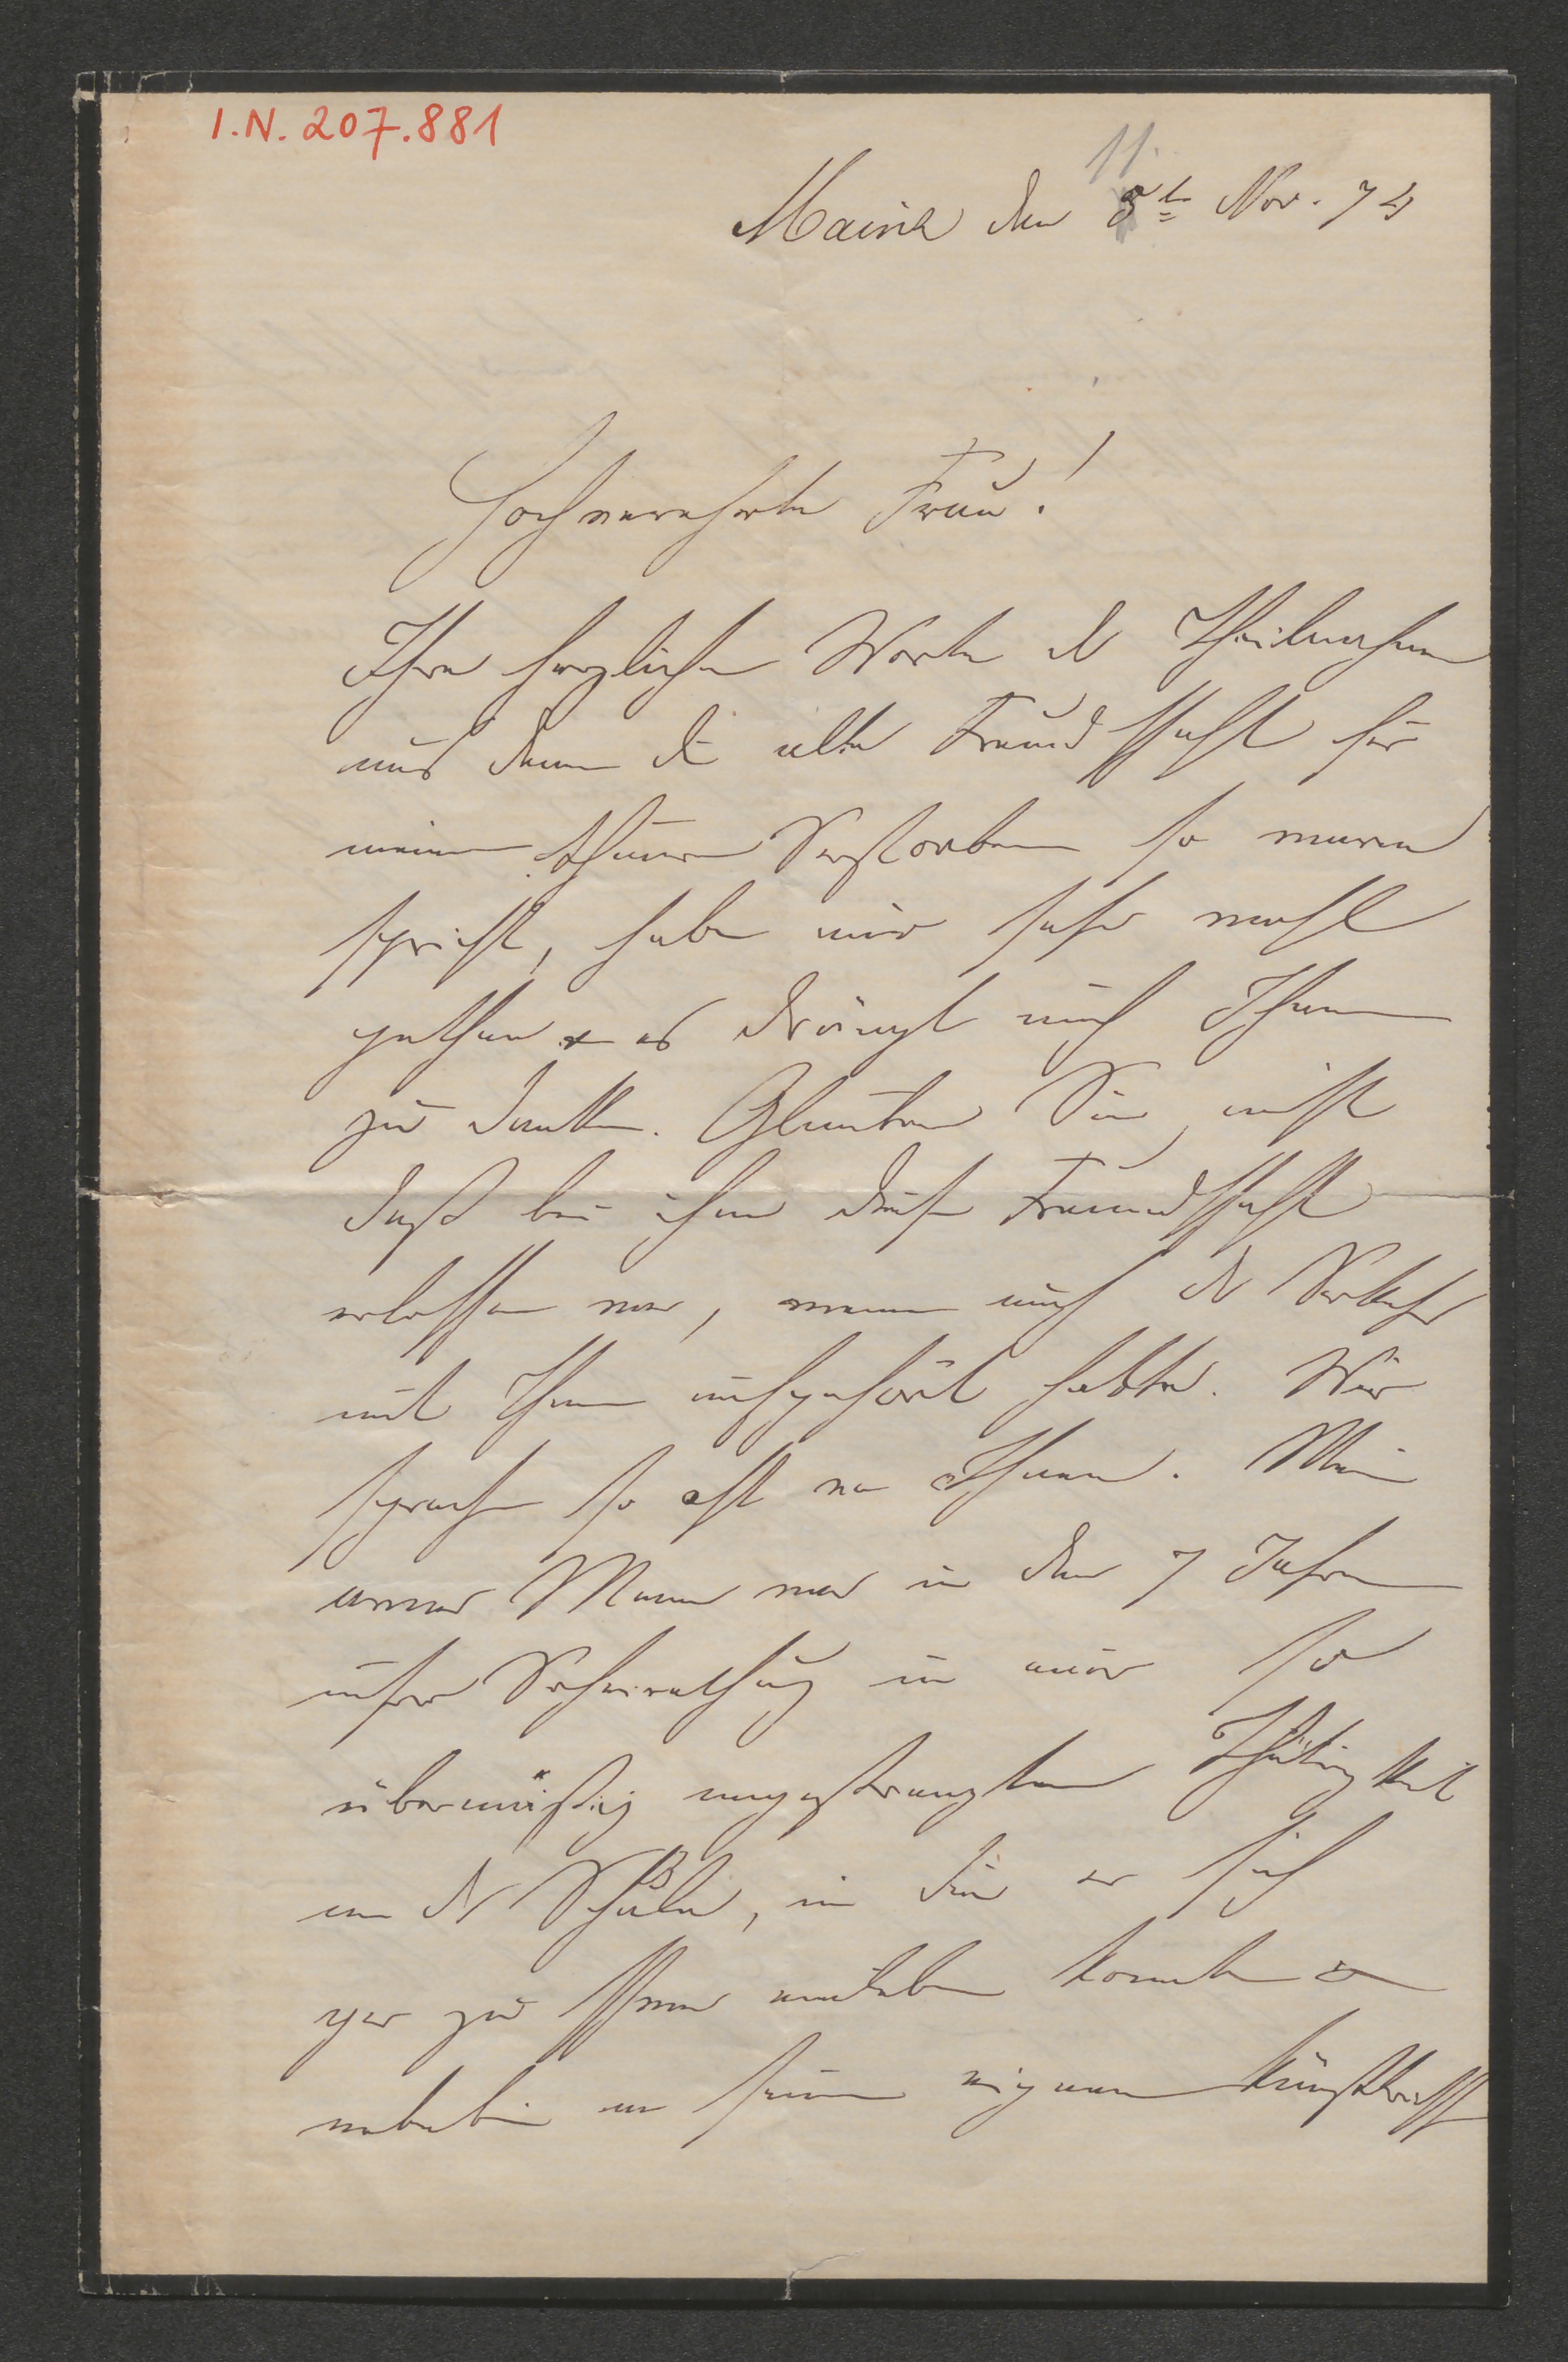 I.N. 207.881
11.
Mainz den 8t Nov. 74
Hochverehrte Frau!
Ihre herzlichen Worte der Theilnahme
aus denen die alte Freundschaft für
meinen theuren Verstorbenen so warm
spricht, haben mir sehr wohl
gethan & es drängt mich Ihnen
zu danken. Glauben Sie nicht
daß bei ihm diese Freundschaft
erloschen war, wenn auch der Verkehr
mit Ihnen aufgehört hatte. Wir
sprachen so oft von Ihnen. Mein
armer Mann war in den 7 Jahren
unsrer Verheirathung in einer so
übermäßig angestrengten Thätigkeit
an der Schule, in die er sich
gar zu schwer einleben konnte &
nebenbei an seinen eigenen